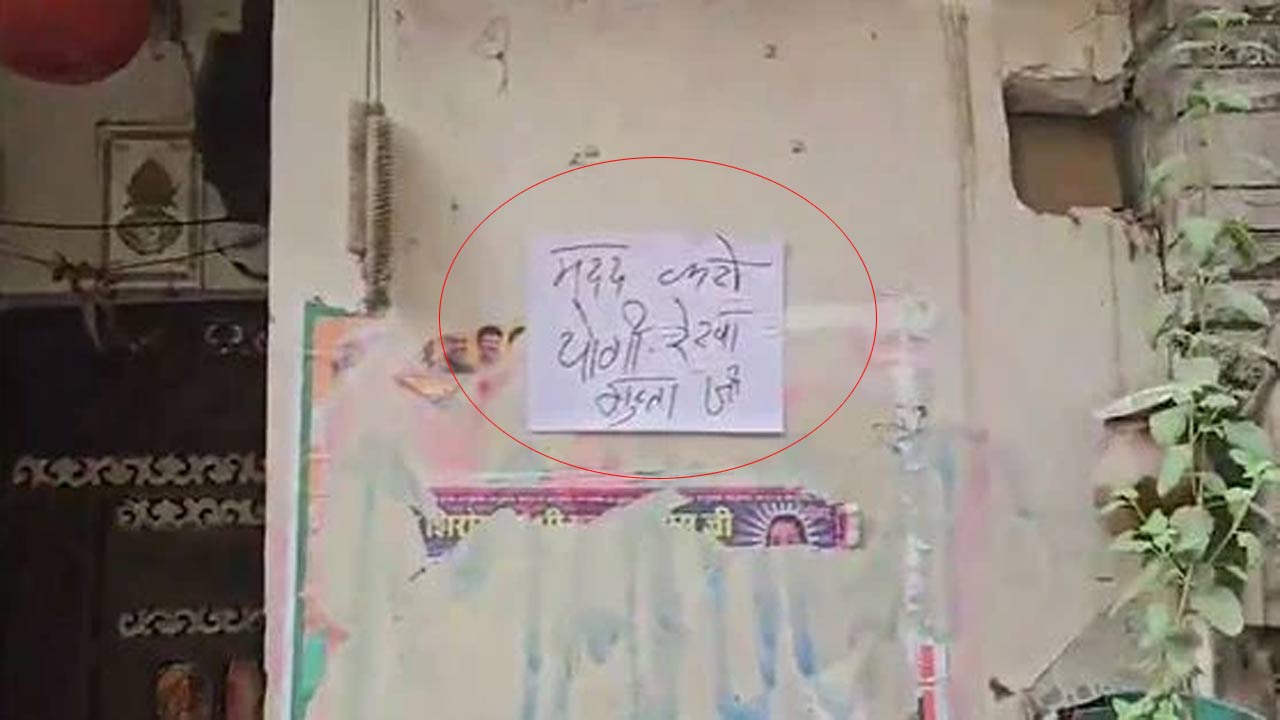 मदद करो
योगी-रेखा
गुप्ता जी
जी